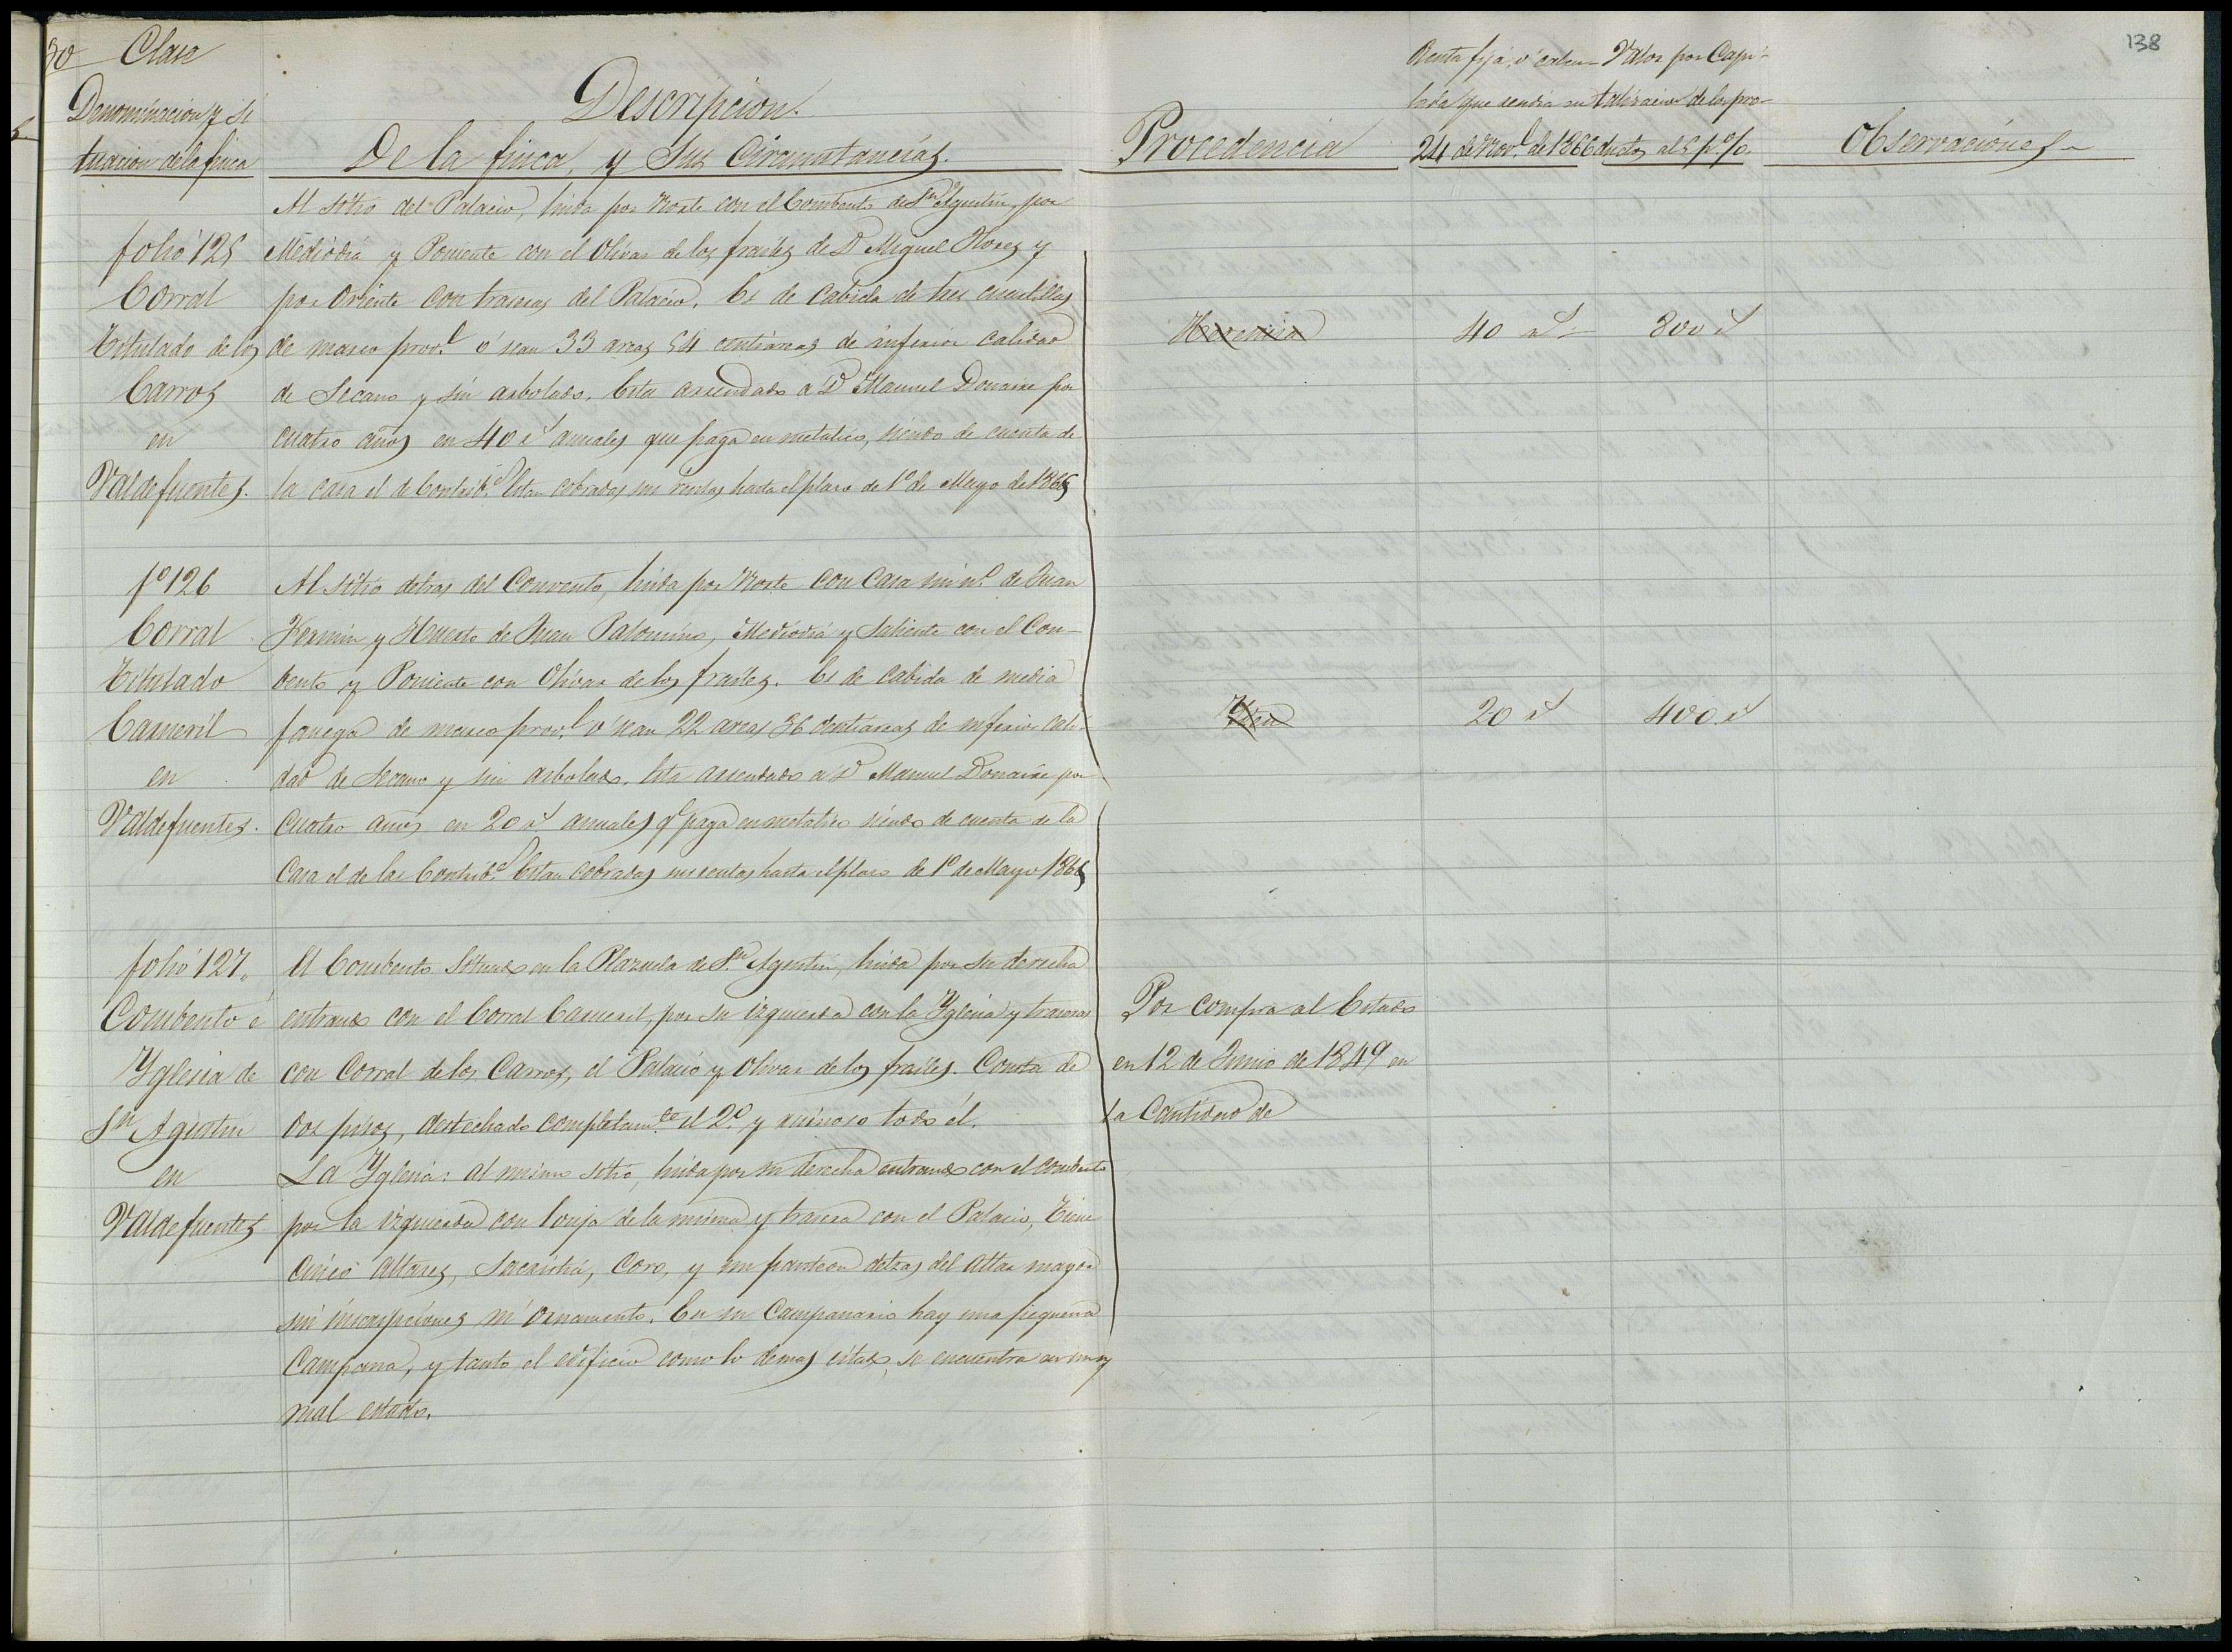 138
Clase
Denominacion y Si
tuacion de la finca
Descripcion.
De la finca, y Sus Circunstancias.
Procedencia
Renta fija, ó calcu-
lada que tendia en
24 de Nov.e de 1866
Valor por Capi-
talizacion de los pro-
ductos al 5 p.%
Observaciones
folio 125
Corral
titulado de los
Carros
en
Valdefuentes.
Al sitio del Palacio, linda por Norte con el Combento de Sn Agustin, por
Mediodia y Poniente con el Olivar de los frailes de D Miguel Flores y
por Oriente con traseras del Palacio. Es de cabida de tres cuartillas
de marco prov.l ó sean 33 areas 54 centiareas de inferior calidad
de Secano y sin arbolado. Esta arrendado a D Manuel Donaire por
cuatro años en 40 rs anuales que paga en metalico, siendo de cuenta de
la casa el de Contrib.s Estan cobradas sus rentas hasta el plazo de 1º de Mayo de 1865
Herencia
40 rs
800 rs
fº 126
Corral
titulado
Carneril
en
Valdefuentes.
Al sitio detras del Convento, linda por Norte con Casa sin nº de Juan
Fermin y Huerto de Juan Palomino, Mediodia y Saliente con el Con-
bento y Poniente con Olivar de los frailes. Es de cabida de media
fanega de marco prov.l ó sean 22 areas 36 centiareas de inferior cali-
dad de Secano y sin arbolado. Esta arrendado a D Manuel Donaire por
Cuatro años en 20 rs anuales qe paga en metalico siendo de cuenta de la
Casa el de las Contrib.s Estan cobradas sus rentas hasta el plazo de 1º de Mayo 1865
Yden
20 rs
400 rs
folio 127
Combento é
Yglesia de
Sn Agustin
en
Valdefuentes
El Combento situado en la Plazuela de Sn Agustin, linda por su derecha
entrando con el Corral Carneril, por su izquierda con la Yglesia y traseras
con Corral de los Carros, el Palacio y Olivar de los frailes. Consta de
dos pisos, destechado completamte el 2º y ruinoso todo él.
La Yglesia: al mismo sitio, linda por su derecha entrando con el combento
por la izquierda con lonja de la misma y trasera con el Palacio, Tiene
cinco altares, Sacristia, Coro, y un panteon detras del Altar mayor
sin inscripciones ni ornamento. En su Campanario hay una pequeña
Campana, y tanto el edificio como lo demas citado, se encuentra en muy
mal estado.
Por compra al Estado
en 12 de Junio de 1849 en
la Cantidad de